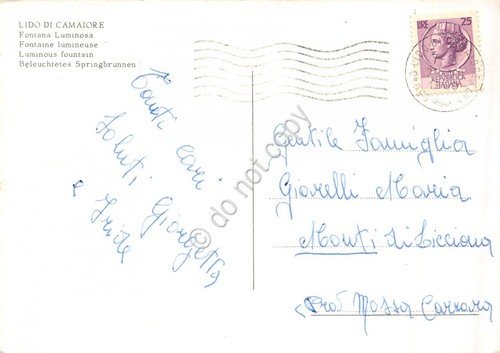 LIDO DI CAMAIORE
Fontana Luminosa
Fontaine lumineuse
Luminous fountain
Beleuchtetes Springbrunnen
LIRE 25
Tanti cari
saluti Giorgetta
e Iride
Gentile Famiglia
Giorelli Maria
Monti di Licciana
(Prov Massa Carrara
© do not copy